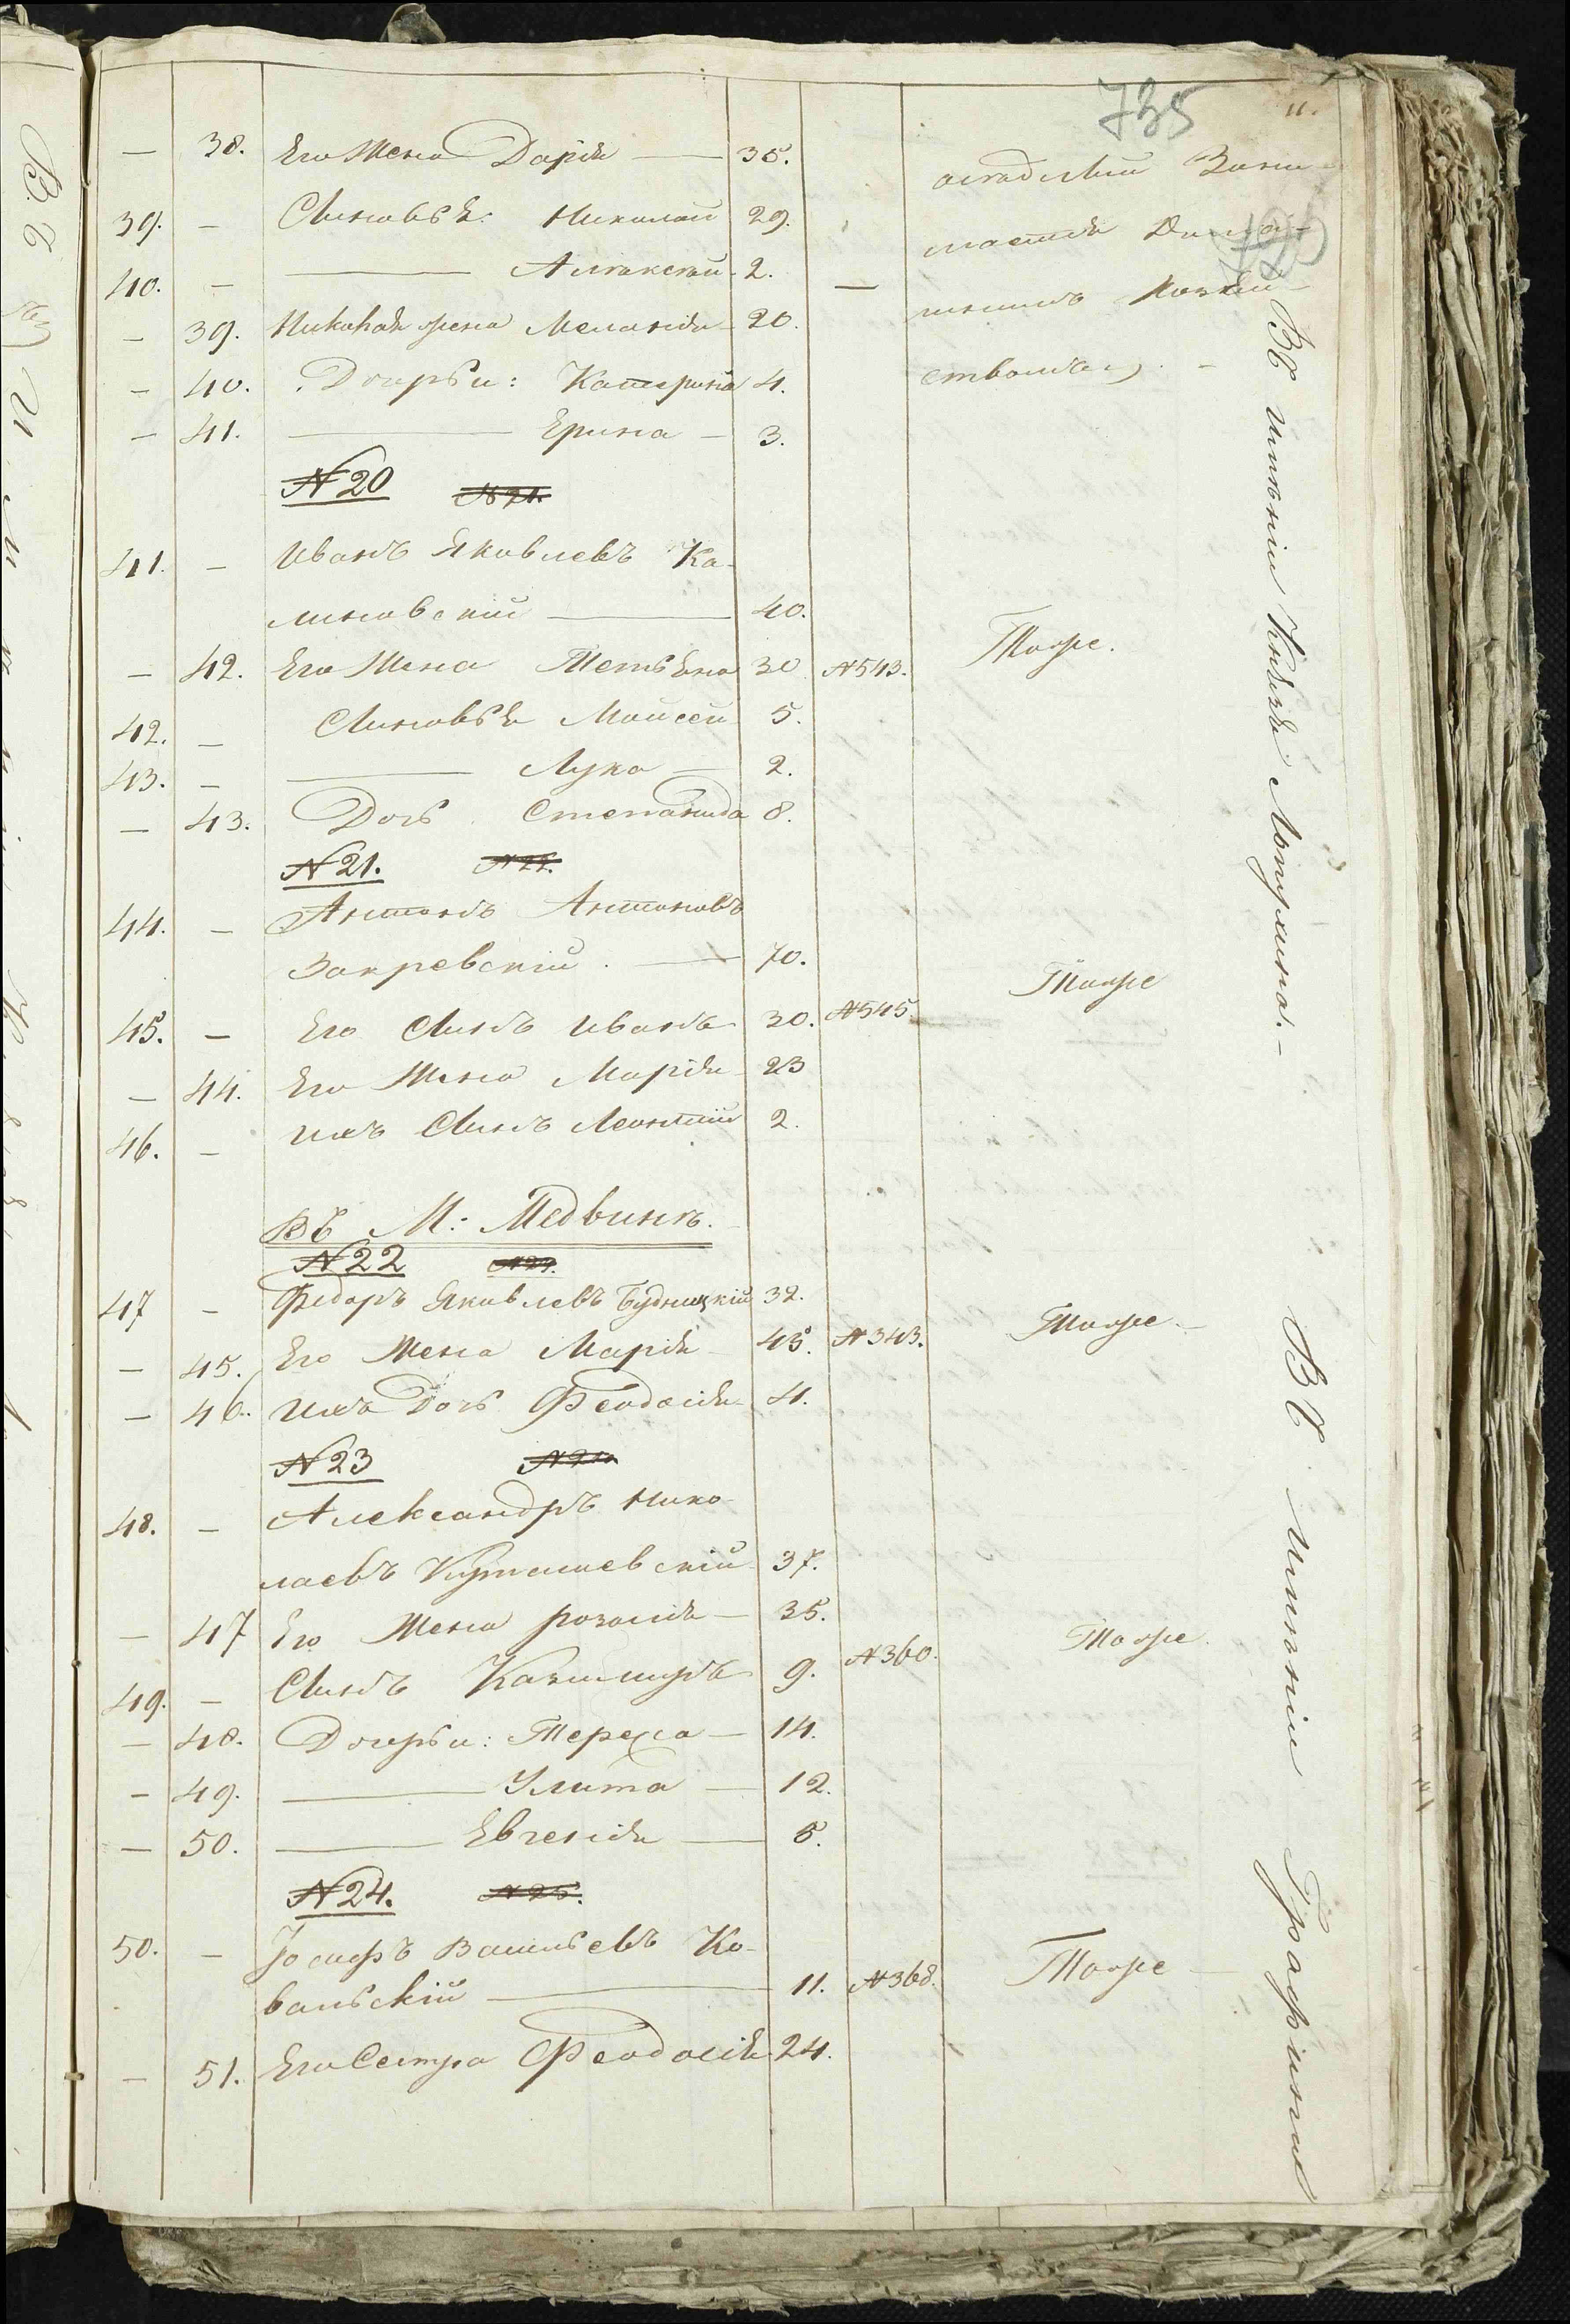 735
11.
— 38. Его Жена Дарія — 35. осѣдлый Зани-
39. — Сыновья: Николай 29. мается Дома-
40. — — Алексѣй 2. — шнимъ Хозяй-
— 39. Николая жена Меланія 20. ствомъ
— 40. Дочрьи: Катерина 4.
— 41. — Ерина — 3.
№20
41. — Иванъ Яковлевъ Ка-
линовскій — 40.
— 42. Его Жена Тетьяна 30 №543. Тоже.
42. — Сыновья Мойсей 5.
43. — — Лука — 2.
— 43. Дочь Степанида 8.
№21.
44. — Антонъ Антоновъ
Закревскій. — 70.
45. — Его Сынъ Иванъ 30. №545 Тоже
— 44. Его Жена Марія 23
46. — ихъ Сынъ Леонтій 2.
Въ М: Медвинѣ.
№22
47 — Федоръ Яковлевъ Будницкій 32.
— 45. Его Жена Марія 45. №343. Тоже —
— 46. ихъ Дочь Феодосія 4.
№23
48. — Александръ Нико-
лаевъ 37.
— 47 Его Жена розалія — 35.
49. — Сынъ Казимиръ 9. №360. Тоже.
— 48. Дочерьи: Тереса — 14.
— 49. — Улита — 12.
— 50. — Евгенія — 5.
№24. №25.
50. — Іосифъ Васильевъ Ко-
вальскій — 11. №368. Тоже —
— 51. Его Сестра Феодосія 24.
Въ имѣніи Князя Лопухина. —
Въ Имѣніи Графини